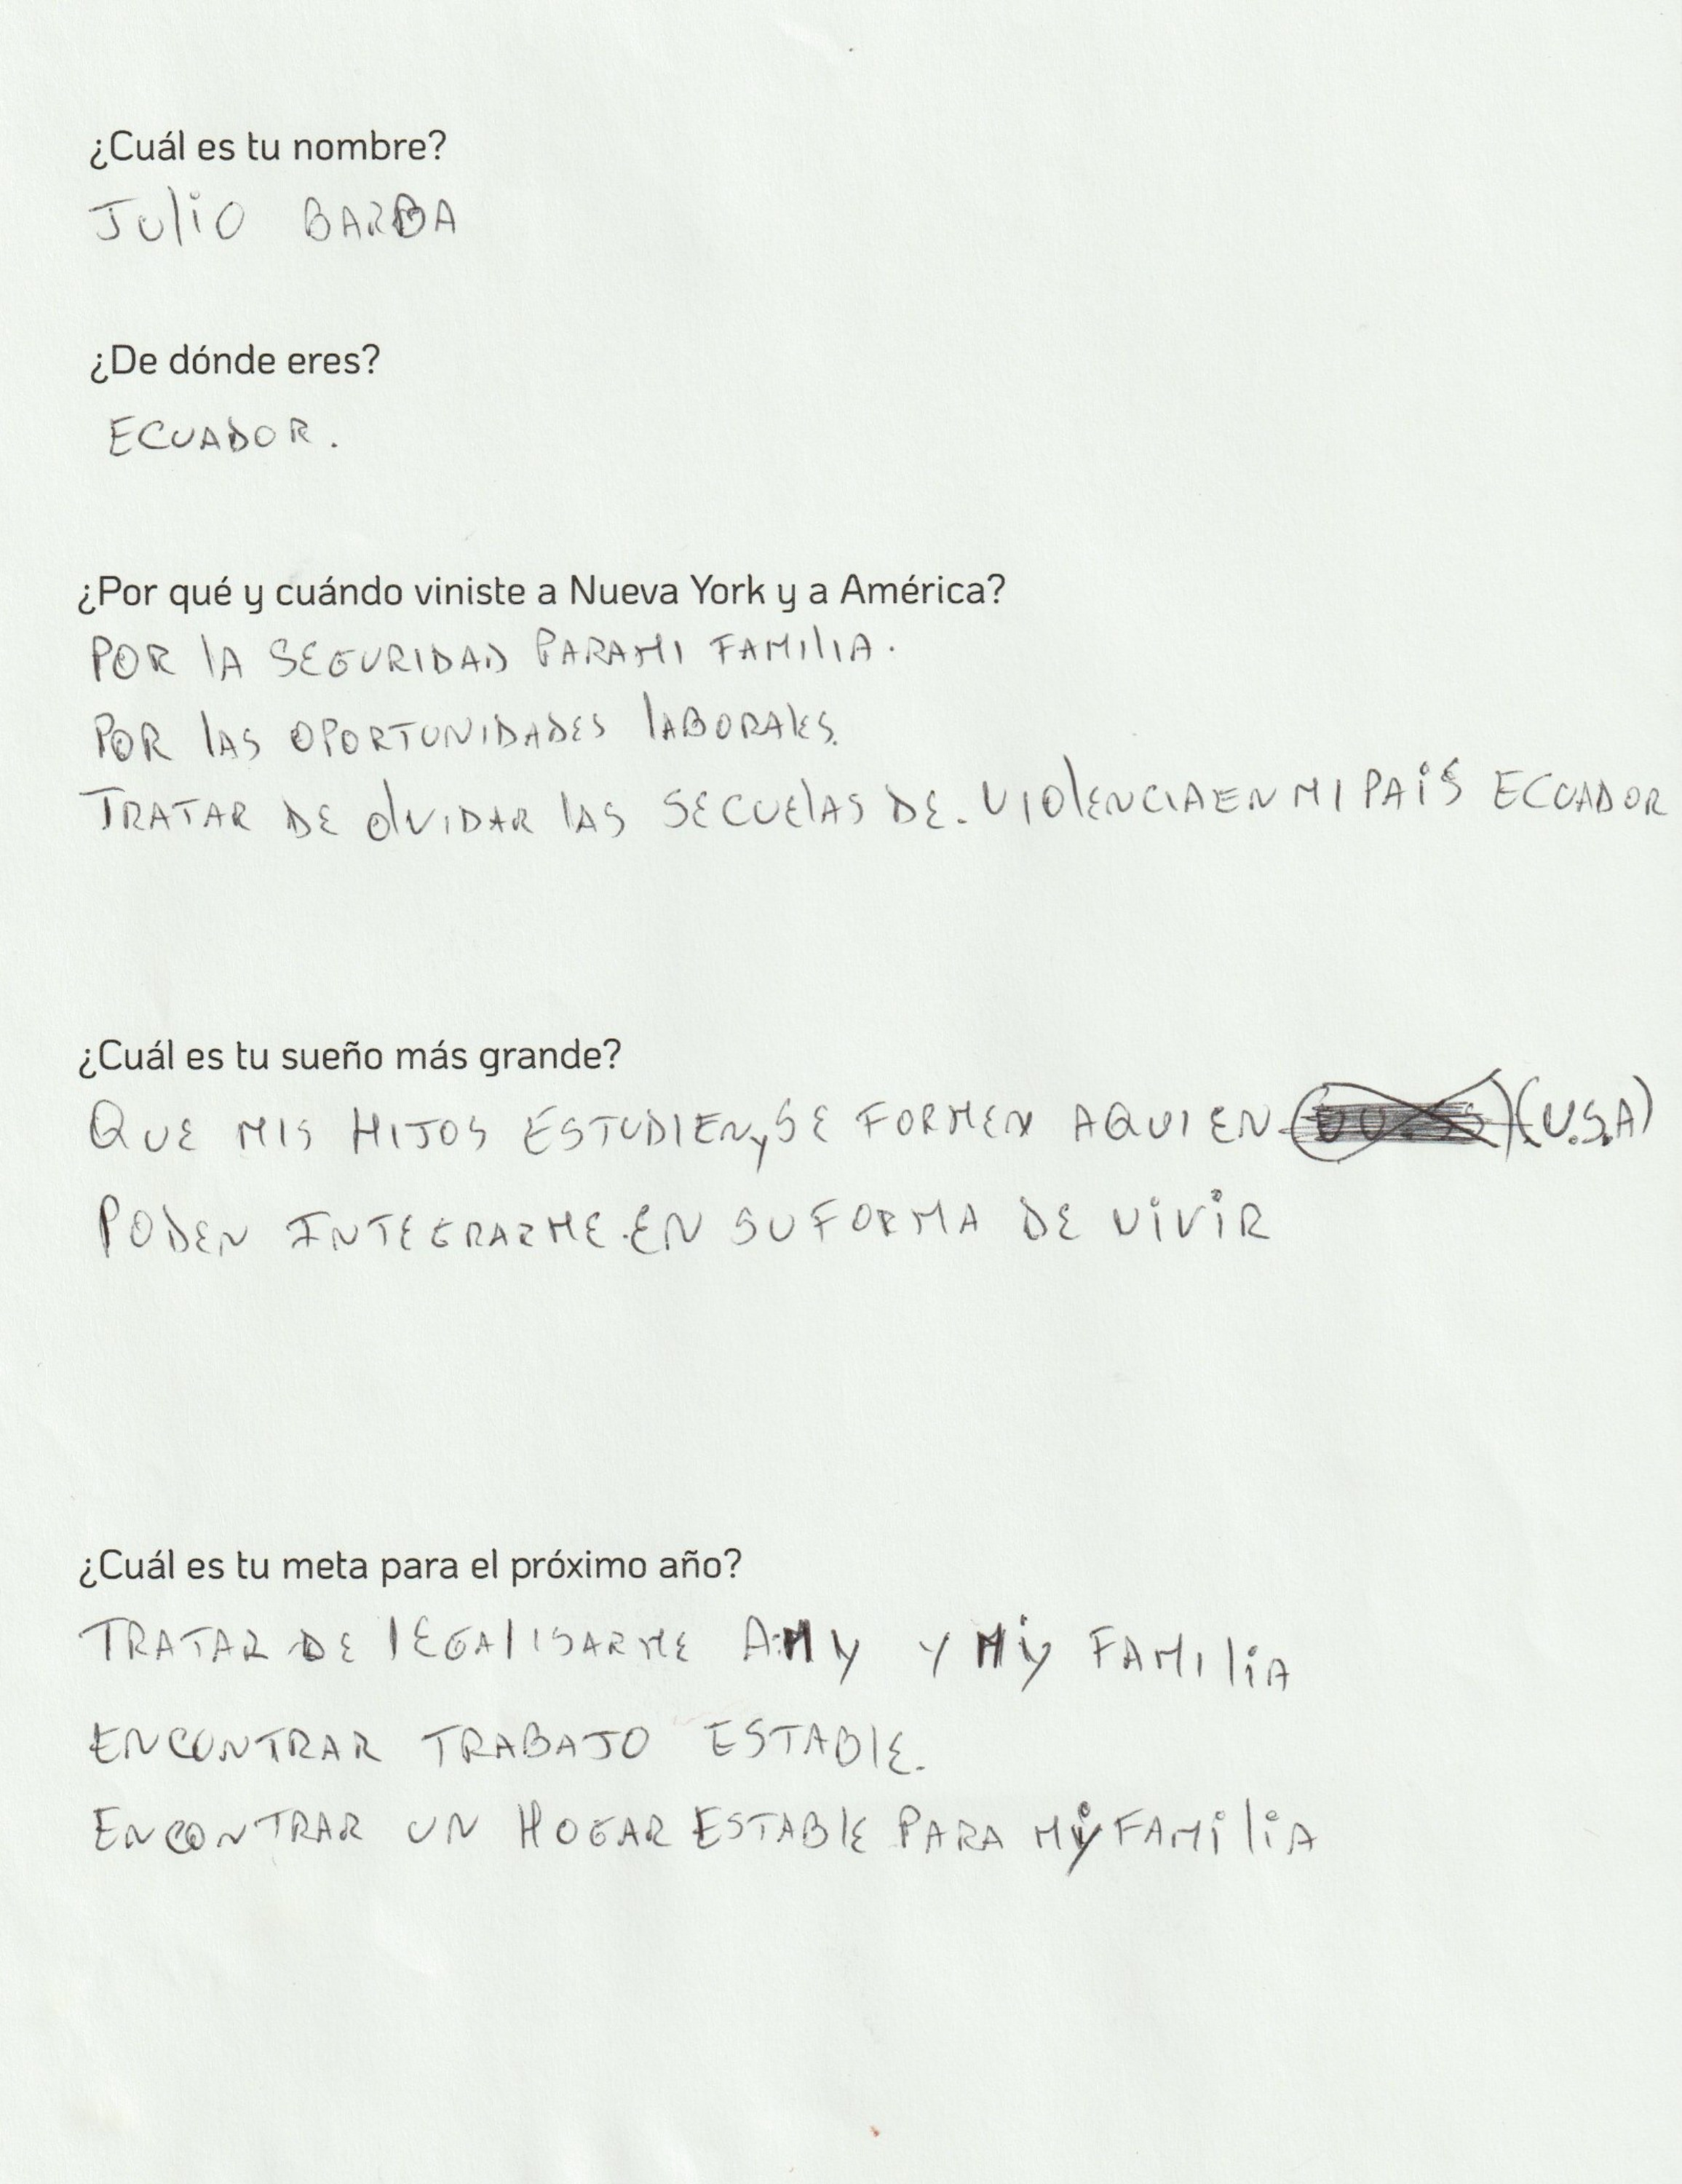 ¿Cuál es tu nombre?
Julio BARBA
¿De dónde eres?
ECUADOR.
¿Por qué y cuándo viniste a Nueva York y a América?
POR lA SEGURIDAD PARA MI FAMIlIA.
POR lAS OPORTUNIDADES lABORAlES.
TRATAR DE OlVIDAR lAS SECUElAS DE. VIOlENCIA EN MI PAÍS ECUADOR
¿Cuál es tu sueño más grande?
QUE MIS HIJOS ESTUDIEN y SE FORMEN AQUI EN (U.S.A)
PODEN INTEGRARME EN SU FORMA DE ViViR
¿Cuál es tu meta para el próximo año?
TRATAR DE lEGAlISARME A MY Y MiY FAMIliA
ENCONTRAR TRABAJO ESTABlE.
ENCONTRAR UN HOGAR ESTABlE PARA MY FAMiliA